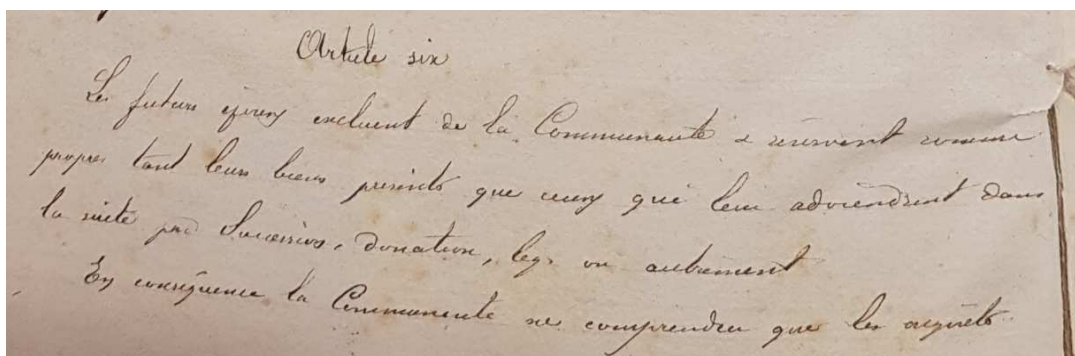 Article six
Les futurs époux excluent de la Communauté & réservent comme
propres tant leurs biens présents que ceux qui leur adviendront dans
la suite par Succession, donation, legs ou autrement
En conséquence la Communauté ne comprendra que les acquêts